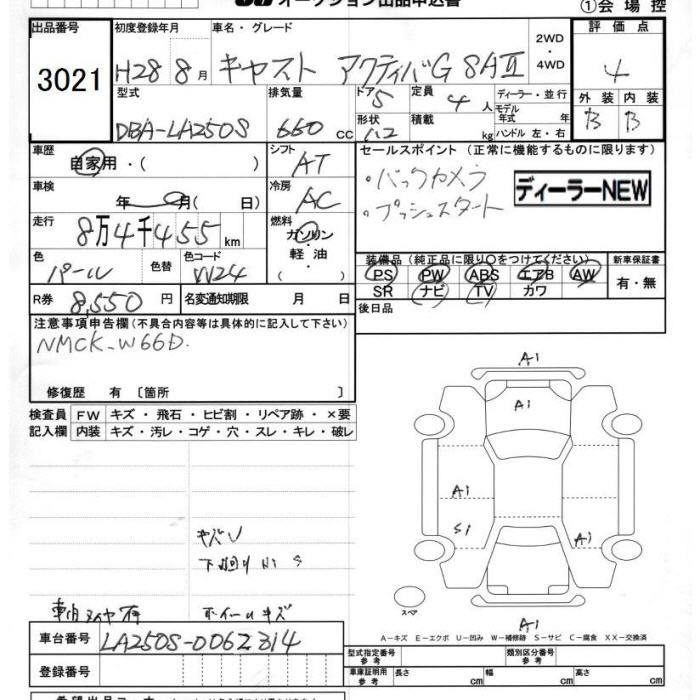 オークション出品申込書
①会場控
出品番号 初度登録年月 車名・グレード 2WD・4WD 評価点
3021 H28 8月 キャスト アクティバG SAⅡ 4
型式 排気量 ドア 5 定員 4人 ディーラー・並行 外装 内装
DBA-LA250S 660cc 形状 積載 kg モデル年式 年 ハンドル 左・右 B B
車歴 シフト セールスポイント(正常に機能するものに限ります)
自家用・( ) AT ・バックカメラ ディーラーNEW
車検 冷房 ・プッシュスタート
年 月( 日) AC
走行 燃料
8万4千455km ガソリン・軽油・( )
色 色替 色コード 装備品(純正品に限り○をつけてください) 新車保証書
パール W24 PS PW ABS エアB AW 有・無
SR ナビ TV カワ
R券 8,550円 名変通知期限 月 日 後日品
注意事項申告欄(不具合内容等は具体的に記入して下さい)
NMCK-W66D.
修復歴 有 〔箇所 〕
検査員 FW キズ・飛石・ヒビ割・リペア跡・×要
記入欄 内装 キズ・汚レ・コゲ・穴・スレ・キレ・破レ
A1
A1
A1
S1
A1
A1
キズU
下廻りH1 S
スペア
ホイールキズ
A-キズ E-エクボ U-凹み W-補修跡 S-サビ C-腐食 XX-交換済
車台番号 LA250S-0062314 型式指定番号 参考 類別区分番号 参考
登録番号 車庫証明用 参考 長さ cm 幅 cm 高さ cm
希望出品コーナー